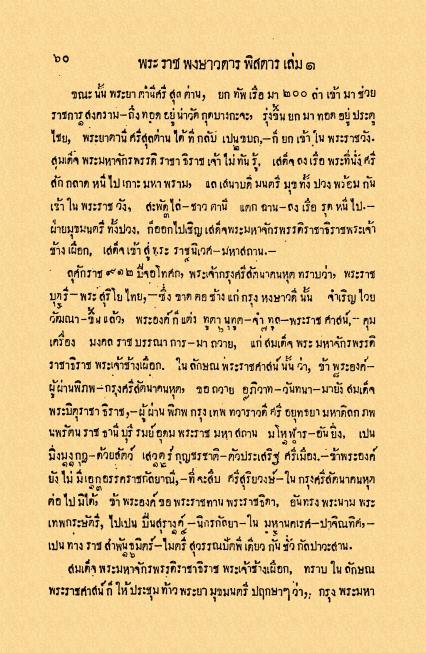 ๖๐ พระ ราช พงษาวดาร พิสดาร เล่ม ๑
ขณะ นั้น พระยา ตานีศรี สุลต่าน, ยก ทัพ เรือ มา ๒๐๐ ลำ เข้า มา ช่วย
ราชการ สงคราม–ถึง ทอด อยู่ น่าวัด กุดบางกะจะ, รุ่งขึ้น ยก มา ทอด อยู่ ประตู
ไชย, พระยาตานี ศรีสุลต่าน ได้ ที กลับ เปนขบถ,–ก็ ยก เข้า ใน พระราชวัง.
สมเด็จ พระมหาจักรพรรดิ ราชา ธิราช เจ้า ไม่ ทัน รู้, เสด็จ ลง เรือ พระที่นั่ง ศรี
สัก กลาด หนี ไป เกาะ มหา พราม, แล เสนาบดี มนตรี มุข ทั้ง ปวง พร้อม กัน
เข้า ใน พระราช วัง, สะพัดไล่–ชาว ตานี แตก ฉาน–ลง เรือ รุด หนี ไป.–
ฝ่ายมุขมนตรี ทั้งปวง, ก็ออกไปเชิญ เสด็จพระมหาจักรพรรดิราชาธิราชพระเจ้า
ช้างเผือก, เสด็จ เข้า สู่ พระ ราชนิเวศ–มหาสถาน.–
ลุศักราช ๙๑๒ ปีจอโทศก, พระเจ้ากรุงศรีสัตนาคนหุต ทราบว่า, พระราช
บุตรี–พระ สุริโย ไทย,–ซึ่ง ขาด คอ ช้าง แก่ กรุง หงษาวดี นั้น จำเริญ ไวย
วัฒนา–ขึ้น แล้ว, พระองค์ ก็ แต่ง ทูตานุทูต–จำทูล–พระราช ศาสน์,–คุม
เครื่อง มงคล ราช บรรณา การ–มา ถวาย, แก่ สมเด็จ พระ มหาจักรพรรดิ
ราชาธิราช พระเจ้าช้างเผือก. ใน ลักษณ พระราชศาสน์ นั้น ว่า, ข้า พระองค์–
ผู้ผ่านพิภพ–กรุงศรีสัตนาคนหุต, ขอ ถวาย อภิวาท–วันทนา–มายัง สมเด็จ
พระบิตุราชา ธิราช,–ผู้ ผ่าน พิภพ กรุง เทพ ทวาราวดี ศรี อยุทธยา มหาดิลก ภพ
นพรัตน ราช ธานี บุรี รมย์ อุดม พระราช มหา สถาน มโหฬาร–อัน ยิ่ง. เปน
–ด้วยสัตว์ –ตัวประเสริฐ ศรีเมือง.–ข้าพระองค์
ยัง ไม่ มีเอกอรรคราชกัลยาณี,–ที่จะสืบ ศรีสุริยวงษ์–ใน กรุงศรีสัตนาคนหุต
ต่อ ไป มิได้, ข้า พระองค์ ขอ พระราชทาน พระราชธิดา, อันทรง พระนาม พระ
เทพกระษัตรี, ไปเปน –ใน มหานคเรศ–ปาจิณทิศ,–
เปน ทาง ราช สำพันธมิตร์–ไมตรี สุวรรณปัตพี เดียว กัน ชั่ว กัลปาวะสาน.–
สมเด็จ พระมหาจักรพรรดิราชาธิราช พระเจ้าช้างเผือก, ทราบ ใน ลักษณ
พระราชศาสน์ ก็ ให้ ประชุม ท้าว พระยา มุขมนตรี ปฤกษาๆ ว่า,: กรุง พระมหา